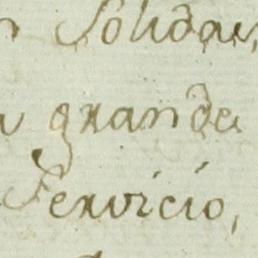 Solidau
grande
Servicio,